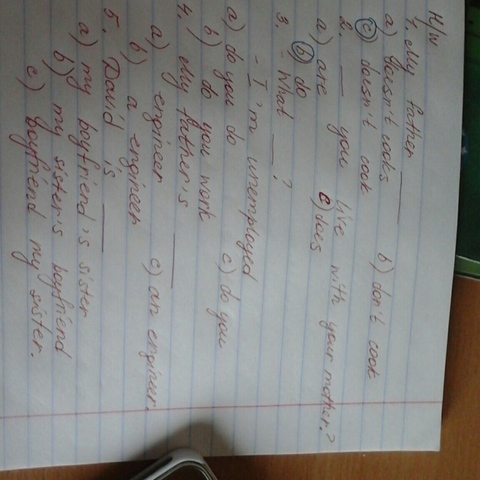 H/w
1. My father ____
a) doesn't cooks b) don't cook
c) doesn't cook
2. ____ you live with your mother?
a) are c) does
b) do
3. What ____?
- I'm unemployed
a) do you do c) do you
b) do you work
4. My father's ____
a) engineer c) an engineer.
b) a engineer
5. David is ____
a) my boyfriend's sister
b) my sister's boyfriend
c) boyfriend my sister.